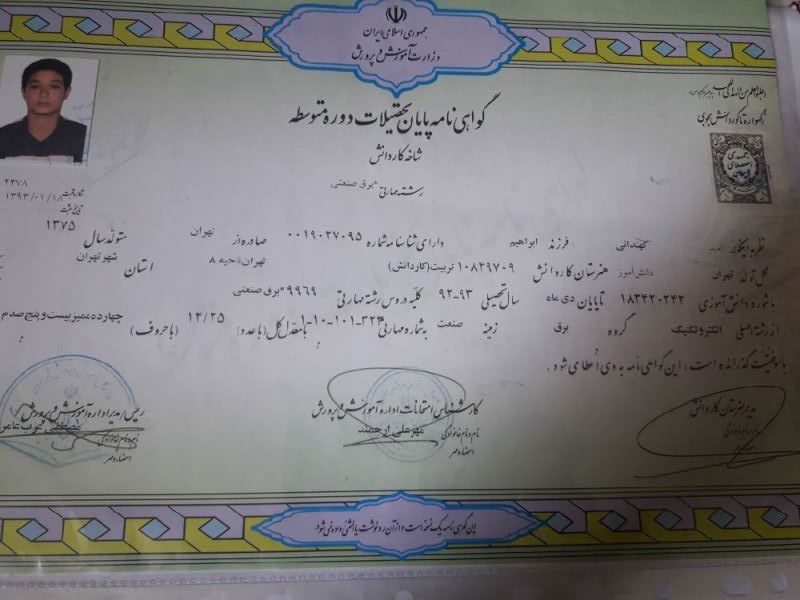 جمهوری اسلامی ایران
وزارت آموزش و پرورش
گواهی نامه پایان تحصیلات دوره متوسطه
شاخه کاردانش
رشته مهارتی "برق صنعتی
۴۳۷۸
شماره ثبت ۱۳۹۳/۰۱/۱۸
تاریخ ثبت
نظر به اینکه کهندانی فرزند ابراهیم دارای شناسنامه شماره ۰۰۱۹۰۲۷۰۹۵ صادره از تهران متولد سال ۱۳۷۵
محل تولد تهران دانش‌آموز هنرستان کاردانش ۱۰۸۴۹۷۰۹ تربیت(کاردانش) تهران ناحیه ۸ شهر تهران استان
با شماره دانش آموزی ۱۸۳۴۲۰۲۴۲ تا پایان دی ماه سال تحصیلی ۹۲-۹۳ کلیه دروس رشته مهارتی ۹۹۶۹ "برق صنعتی
از رشته اصلی الکتروتکنیک گروه برق زمینه صنعت به شماره مهارتی ۱-۱۰-۱۰۱-۳۲۳ با معدل کل (با عدد) ۱۴/۲۵ (با حروف) چهارده ممیز بیست و پنج صدم
با موفقیت گذرانده است، این گواهی نامه به وی اعطا می شود.
مدیر هنرستان کاردانش
نام و نام خانوادگی
امضاء و مهر
کارشناس امتحانات اداره آموزش و پرورش
نام و نام خانوادگی مهرعلی ارجمند
امضاء و مهر
رئیس/مدیر اداره آموزش و پرورش
نام و نام خانوادگی مصطفی عرب عامر
امضاء و مهر
این گواهی نامه یک نسخه است و از آن رونوشت یا المثنی داده نمی شود.